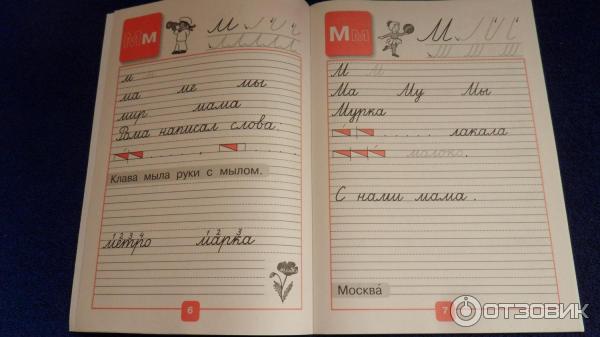 Мм
М
м м
ма ме мы
мир мама
Рома написал слова:
Клава мыла руки с мылом.
1 2 3 4 1 2 3
метро марка
6
Мм
М
М м
Ма Му Мы
Мурка
лакала
молоко.
С нами мама.
Москва́
7
ОТЗОВИК